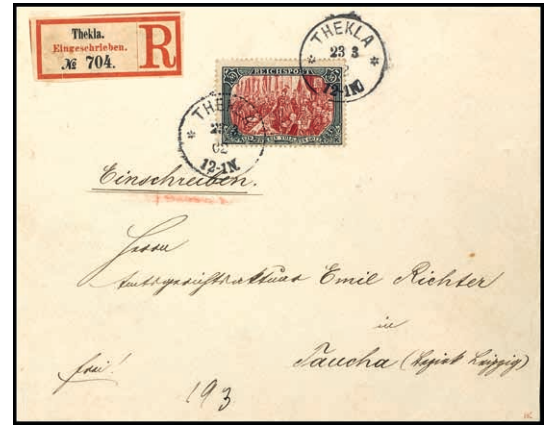 Thekla.
Eingeschrieben.
№ 704.
R
THEKLA
23 3
12-1N
REICHSPOST
THEKLA
02
12-1N.
Einschreiben.
Herrn
Amtsgerichtsaktuar Emil Richter
in
Taucha (Bezirk Leipzig)
frei!
193